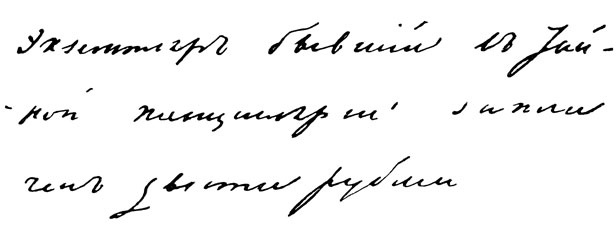 Экземпляръ бывшій въ Тай-
-ной канцеляріи запла
ченъ двести рубли